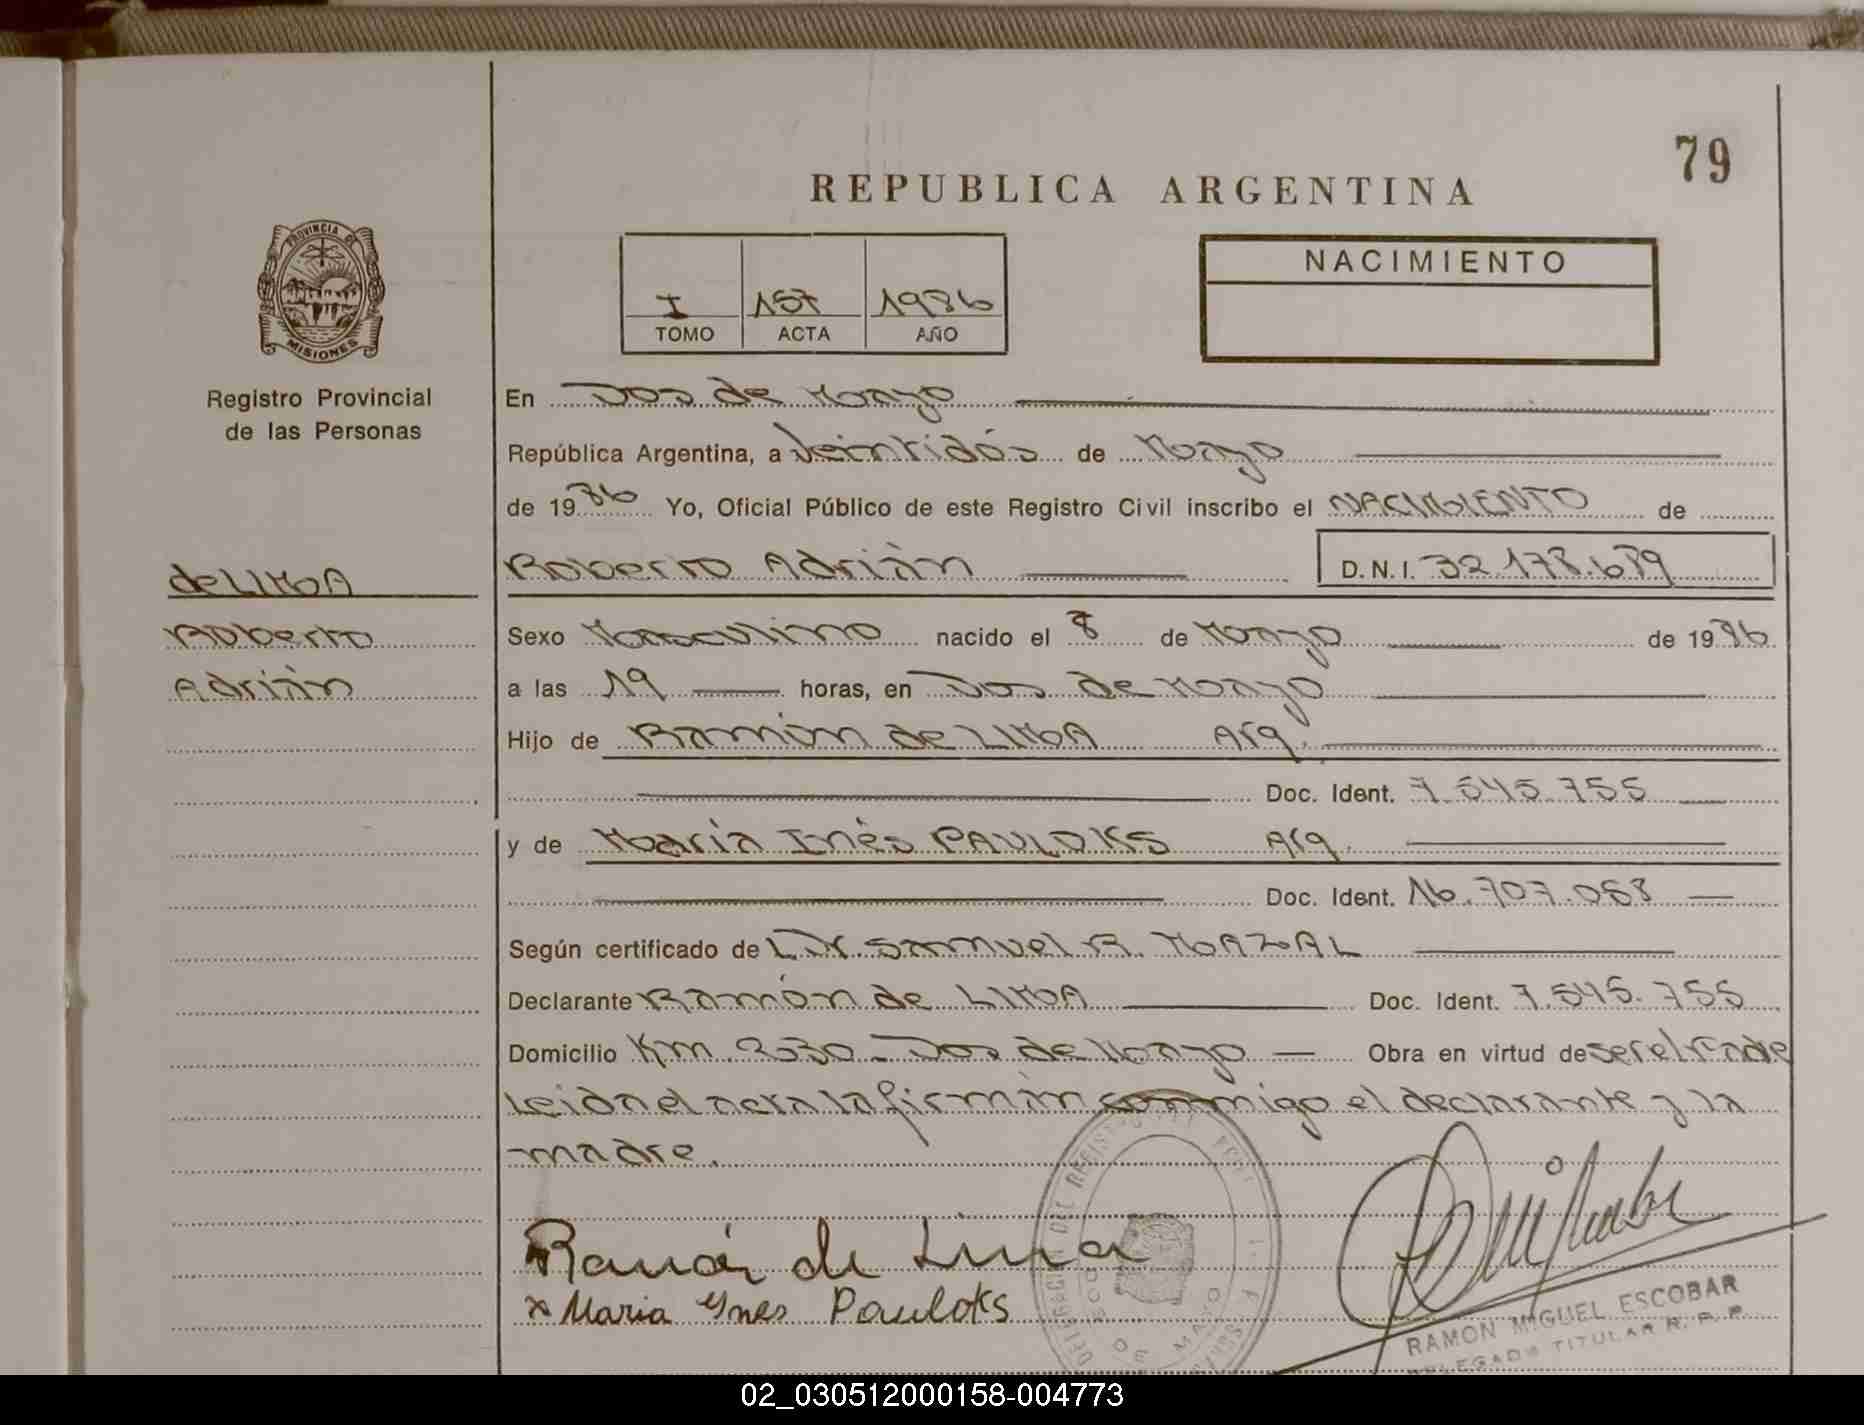 79
REPUBLICA ARGENTINA
PROVINCIA DE
MISIONES
Registro Provincial
de las Personas
I 157 1986
TOMO ACTA AÑO
NACIMIENTO
En Dos de Mayo
República Argentina, a veintidós de Mayo
de 1986 Yo, Oficial Público de este Registro Civil inscribo el NACIMIENTO de
de LIMA
Roberto Adrián D.N.I. 32.178.689
Roberto
Sexo Masculino nacido el 8 de Mayo de 1986
Adrián
a las 19 horas, en Dos de Mayo
Hijo de Ramón de LIMA Arg.
Doc. Ident. 7.545.755
y de María Inés PAULOKS Arg.
Doc. Ident. 16.707.068
Según certificado de Dr. Samuel R. MAZAL
Declarante Ramón de LIMA Doc. Ident. 7.545.755
Domicilio Km. 2530 - Dos de Mayo Obra en virtud de ser el padre
Leida el acta la firmán conmigo el declarante y la
madre.
Ramón de Lima
x Maria Ynes Pauloks
DELEGACION DEL REGISTRO
DE MAYO
RAMON MIGUEL ESCOBAR
DELEGADO TITULAR R. P. P.
02_030512000158-004773